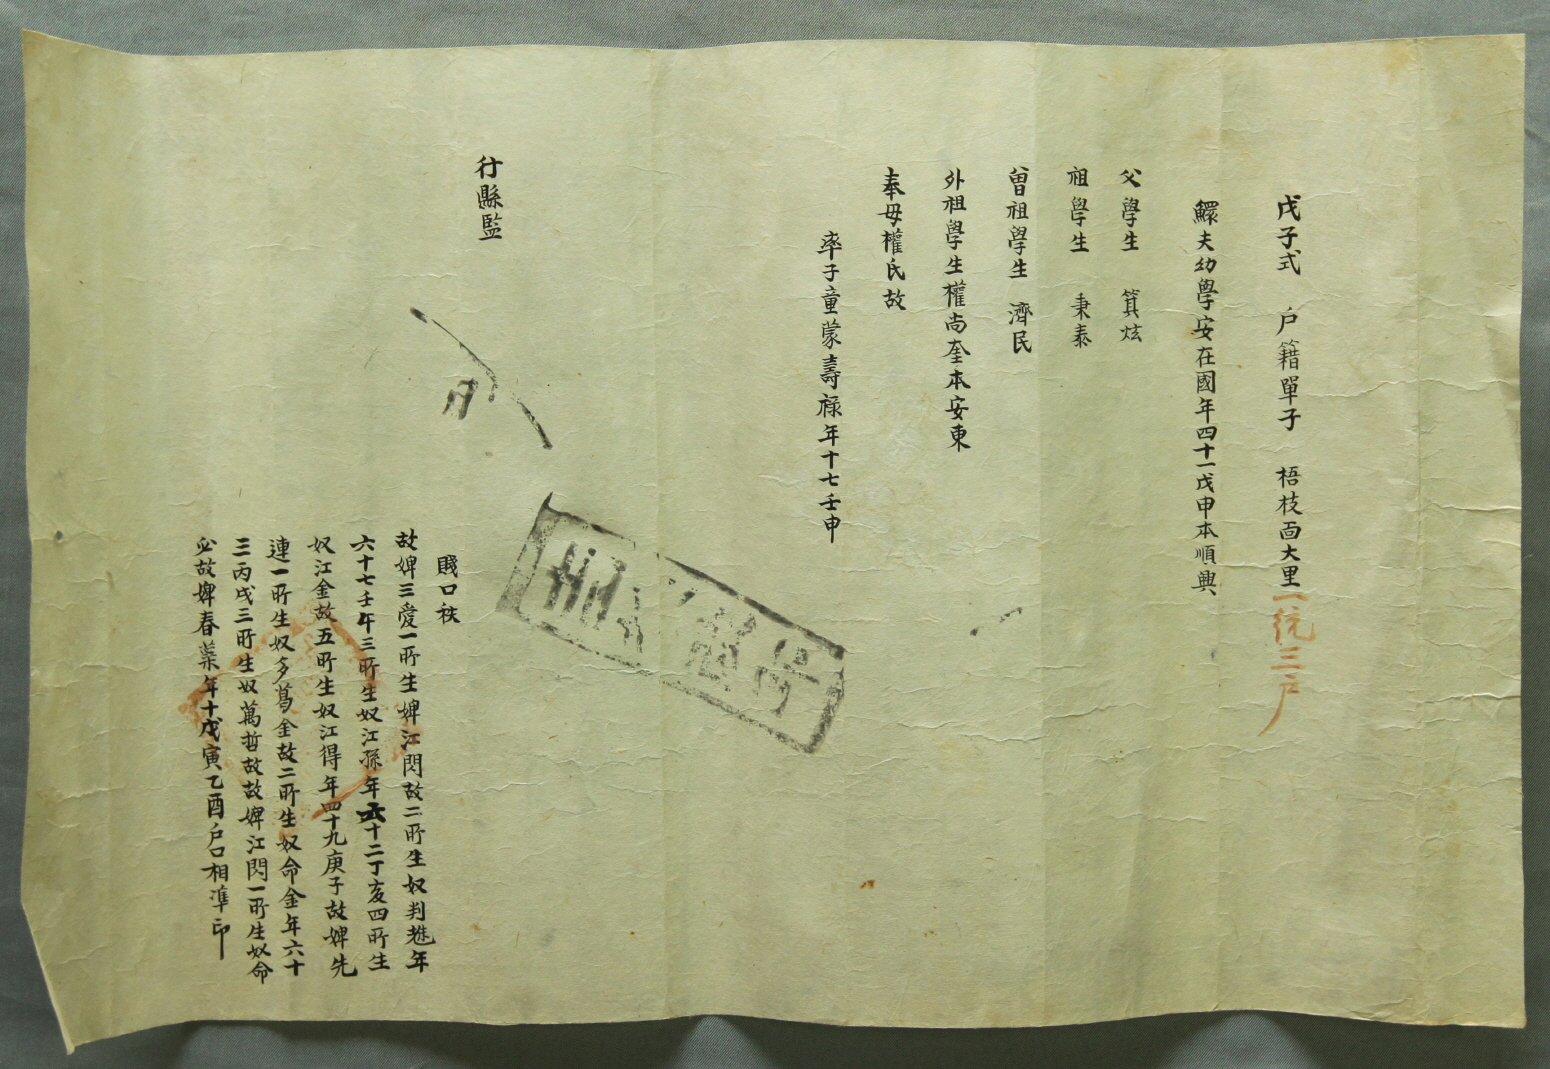 戊子式 戶籍單子 梧枝面大里一統三戶
鰥夫幼學安在國年四十一戊申本順興
父學生 箕炫
祖學生 秉泰
曾祖學生 濟民
外祖學生權尙奎本安東
奉母權氏故
率子童蒙壽祿年十七壬申
行縣監
賤口秩
故婢三愛一所生婢江閃故二所生奴判乭年
六十七壬午三所生奴江孫年六十二丁亥四所生
奴江金故五所生奴江得年四十九庚子故婢先
連一所生奴多葛金故二所生奴命金年六十
三丙戌三所生奴萬哲故故婢江閃一所生奴命
必故婢春業年十戊寅乙酉戶口相準印